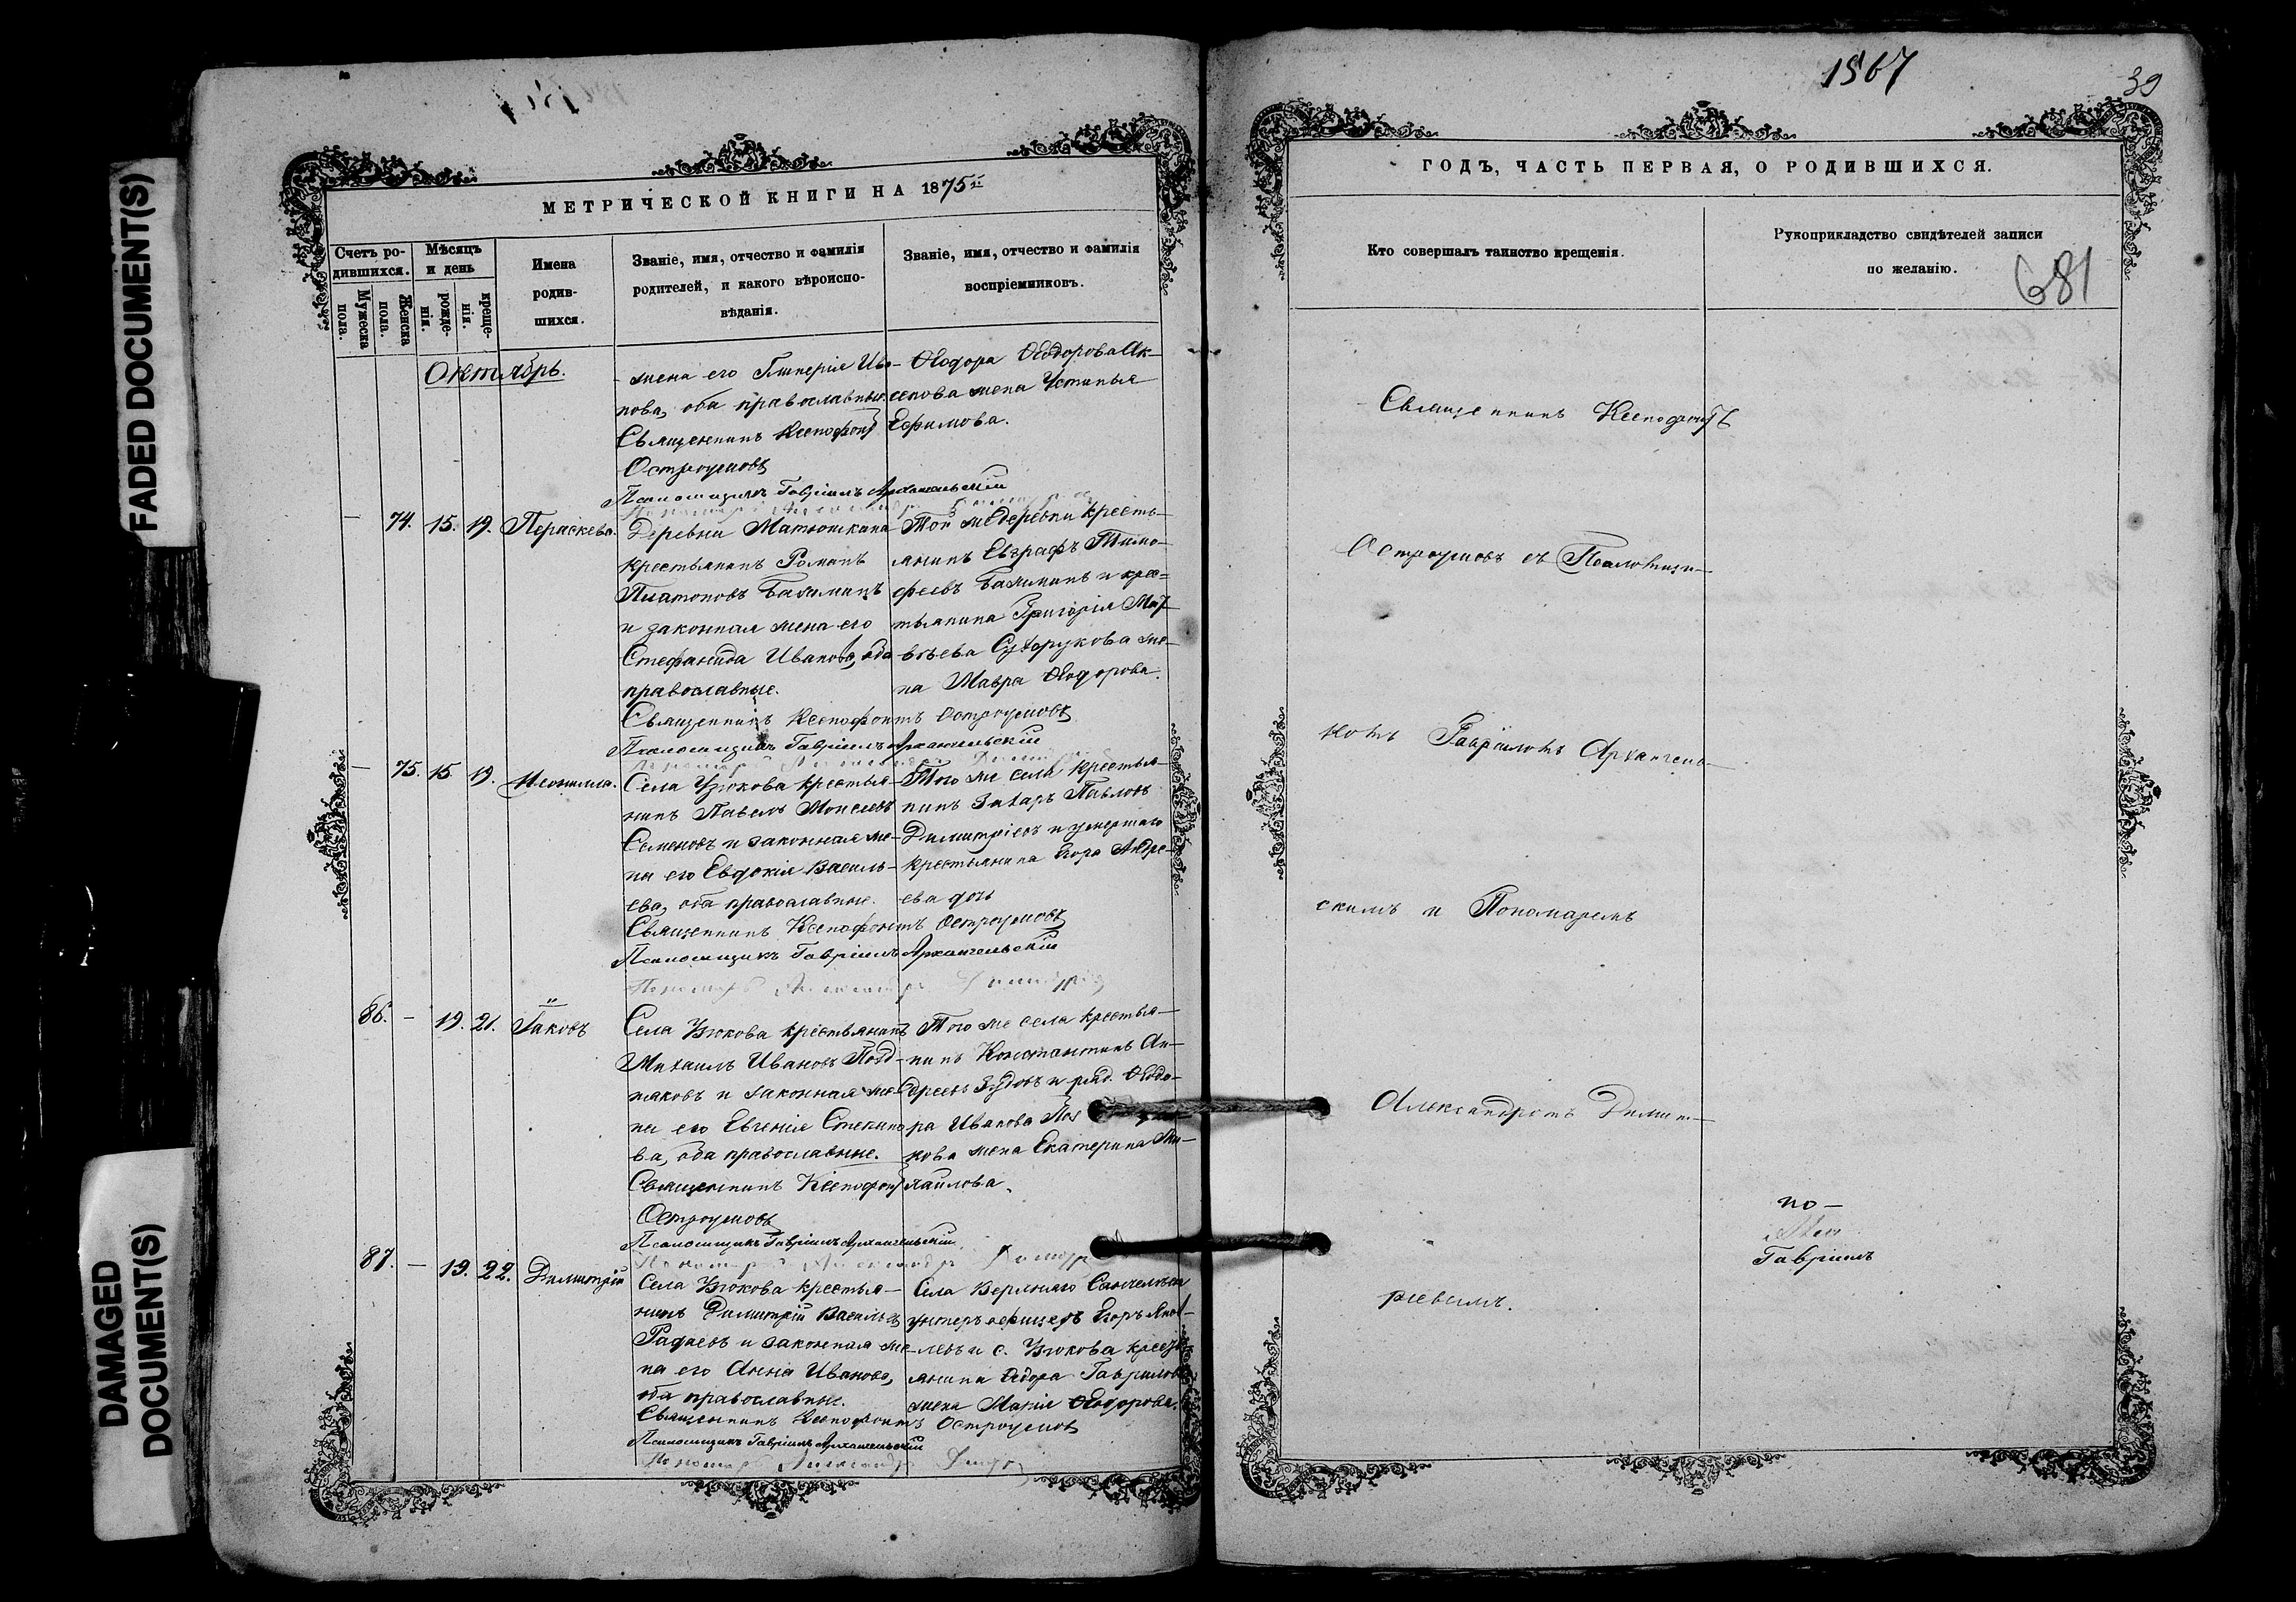 FADED DOCUMENT(S)
DAMAGED DOCUMENT(S)
МЕТРИЧЕСКОЙ КНИГИ НА 1875
Счетъ ро-
дившихся.
Мужеска пола.
Женска пола.
Мѣсяцъ
и день
рожде-
нія.
креще-
нія.
Имена
родив-
шихся.
Званіе, имя, отчество и фамилія
родителей, и какого вѣроиспо-
вѣданія.
Званіе, имя, отчество и фамилія
воспріемниковъ.
Октябрь.
жена его Гликерія Ива-
нова, оба православные.
Священникъ Ксенофонт
Остроумовъ
Псаломщикъ Гавріилъ Архангельскій
Ѳеодора Ѳеодорова Ак-
сенова жена Устинья
Ефимова.
— 74. 15. 19. Параскева.
Деревни Матюшкина
крестьянинъ Романъ
Платоновъ
и законная жена его
Стефанида Иванова, оба
православные.
Священникъ Ксенофонтъ Остроумовъ
Псаломщикъ Гавріилъ Архангельскій
Той же деревни кресть-
янинъ Евграфъ Тимо-
феевъ и крес-
тьянина Григорія Мат-
вѣева Сухорукова же-
на Мавра Ѳеодорова.
— 75. 15. 19. Неонилла.
Села Узюкова крестья-
нинъ Павелъ Моисеевъ
Семеновъ и законная же-
на его Евдокія Василь-
ева, оба православные.
Священникъ Ксенофонтъ Остроумовъ
Псаломщикъ Гавріилъ Архангельскій
Пономарь Александръ
Того же села крестья-
нинъ Захаръ Павловъ
Димитріевъ и умершаго
крестьянина Егора Андре-
ева дочь
86. — 19. 21. Іаковъ
Села Узюкова крестьянинъ
Михаилъ Ивановъ Позд-
няковъ и законная же-
на его Евгенія Степано-
ва, оба православные.
Священникъ Ксенофонт
Остроумовъ
Псаломщикъ Гавріилъ Архангельскій
Того же села крестья-
нинъ Константинъ Ан-
дреевъ и ряд. Ѳеодо-
ра Иванова
кова жена Екатерина Ми-
хаилова.
87. — 19. 22. Димитрій
Села Узюкова крестья-
нинъ Димитрій Васильевъ
и законная же-
на его Анна Иванова,
оба православные.
Священникъ Ксенофонтъ Остроумовъ
Псаломщикъ Гавріилъ Архангельскій
Пономарь Александръ
Села Верхняго Санчелѣева
унтеръ офицеръ Егоръ Яков-
левъ и с. Узюкова кресть-
янина Ѳеодора Гаврилова
жена Марія Ѳеодорова.
1567
39
ГОДЪ, ЧАСТЬ ПЕРВАЯ, О РОДИВШИХСЯ.
Кто совершалъ таинство крещенія.
Рукоприкладство свидѣтелей записи
по желанію.
681
Священникъ Ксенофонтъ
Остроумовъ съ Псаломщи-
комъ Гавріиломъ Архангель-
скимъ и Пономаремъ
Александромъ Димит-
ріевымъ.
по-
Гавріилъ